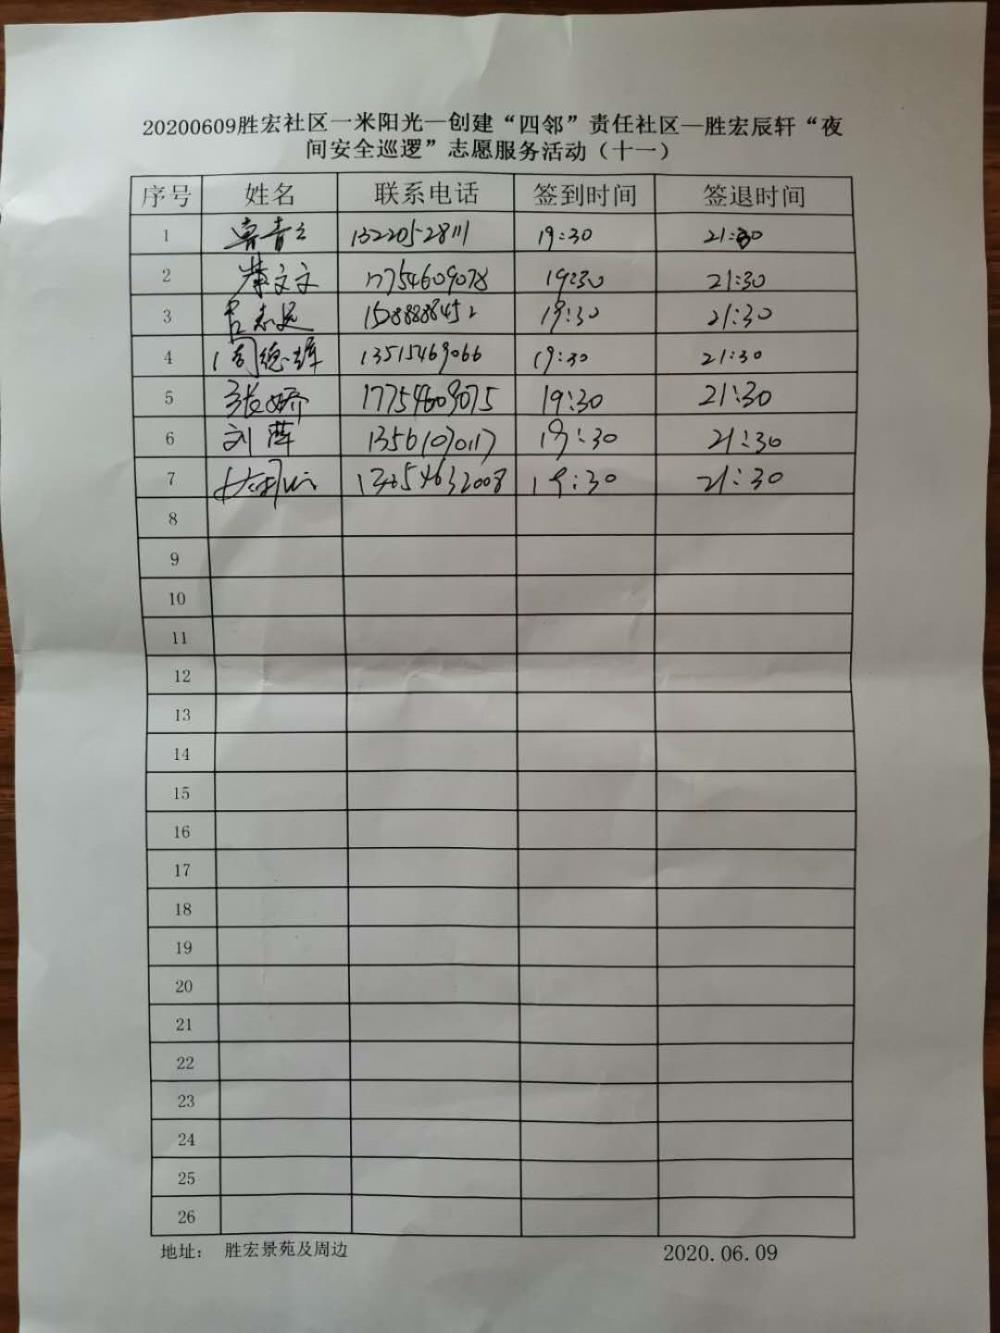 20200609胜宏社区一米阳光—创建“四邻”责任社区—胜宏辰轩“夜
间安全巡逻”志愿服务活动（十一）
序号 姓名 联系电话 签到时间 签退时间
1 13220528111 19:30 21:30
2 文文 17754609078 19:30 21:30
3 吕志远 15288888452 19:30 21:30
4 周德辉 13515469066 19:30 21:30
5 张娇 17754609075 19:30 21:30
6 刘萍 13561070117 19:30 21:30
7 19:30 21:30
8
9
10
11
12
13
14
15
16
17
18
19
20
21
22
23
24
25
26
地址： 胜宏景苑及周边 2020.06.09